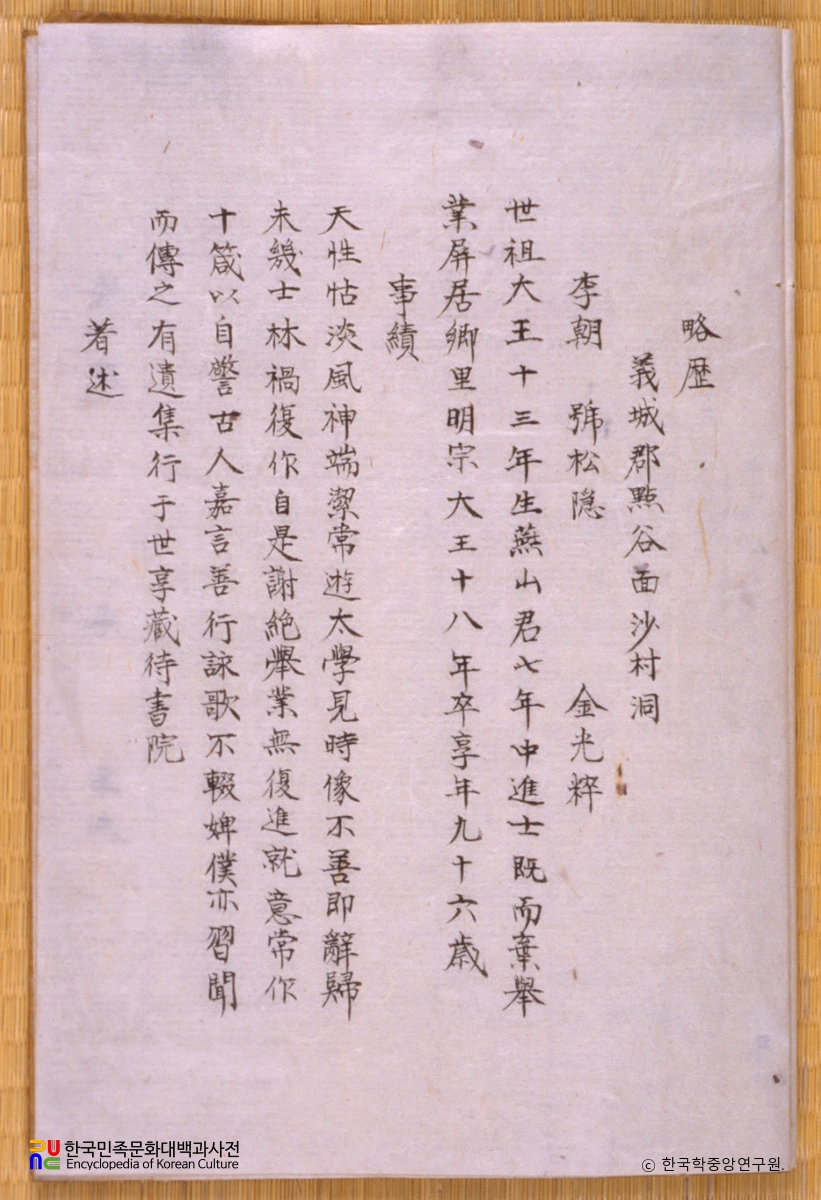 略歴
義城郡點谷面沙村洞
李朝 號松隠 金光粹
世祖大王十三年生燕山君七年中進士既而棄舉
業屏居鄉里明宗大王十八年卒享年九十六歲
事績
天性怗淡風神端潔常遊太學見時像不善即辭歸
未幾士林禍復作自是謝絶舉業無復進就意常作
十箴以自警古人嘉言善行詠歌不輟婢僕亦習聞
而傳之有遺集行于世享藏待書院
著述
한국민족문화대백과사전
Encyclopedia of Korean Culture
© 한국학중앙연구원.